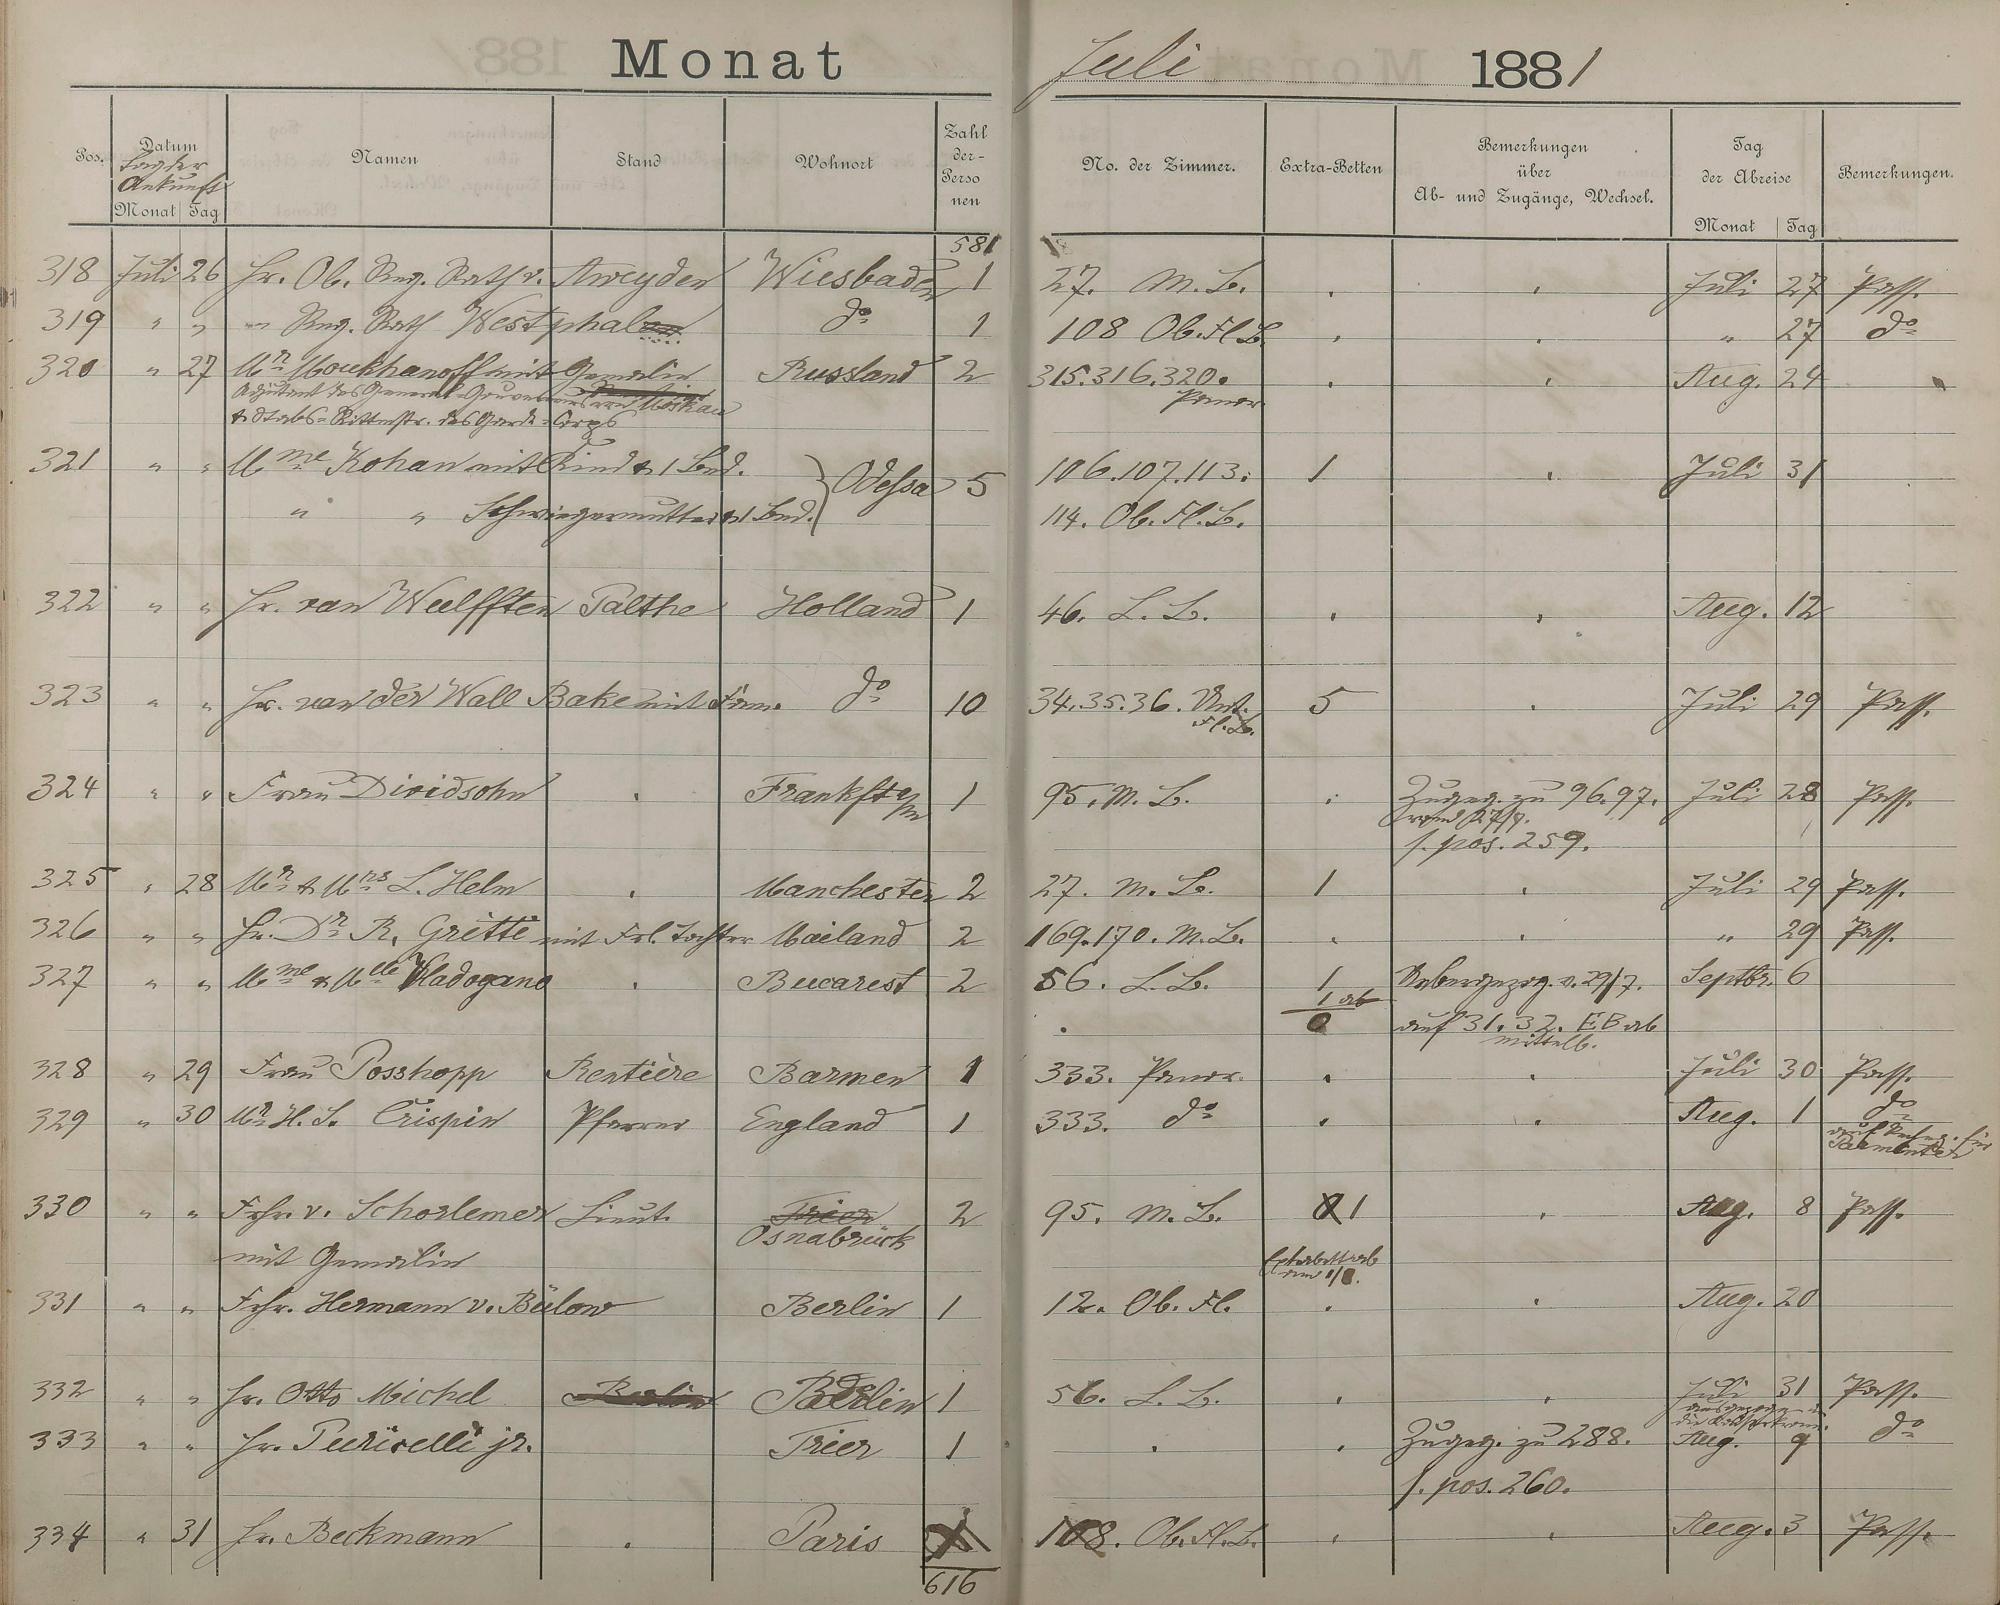 Monat Juli 1881
Pos. Datum Namen Stand Wohnort Zahl der Personen No. der Zimmer. Extra-Betten Bemerkungen über Ab- und Zugänge, Wechsel. Tag der Abreise Bemerkungen.
Tag der Ankunft
Monat Tag Monat Tag
581
318 Juli 26 Hr. Ob. Reg. Rath v. Aweyden Wiesbaden 1 27. M. B. Juli 27 Pass.
319 " " " Reg. Rath Westphal do 1 108 Ob. Fl. B. " 27 do
320 " 27 Mr Moukhanoff mit Gemalin Russland 2 315.316.320. Aug. 24
Adjutant des General-Gouverneurs von Moskau Panor
& Stabs-Rittmstr. des Garde-Corps
321 " " Mme Kohan mit Kind & 1 Bed. Odessa 5 106.107.113. 1 Juli 31
" " Schwiegermutter & 1 Bed. 114. Ob. Fl. B.
322 " " Hr. van Wulfften Palthe Holland 1 46. L. B. Aug. 12
323 " " Hr. van der Wall Bake mit Fam. do 10 34.35.36. Unt. 5 Juli 29 Pass.
Fl. B.
324 " " Frau Dividsohn Frankft a/m 1 95. M. B. Zugeg. zu 96.97. Juli 28 Pass.
s. pos. 259.
325 " 28 Mr & Mrs L. Helm Manchester 2 27. M. B. 1 Juli 29 Pass.
326 " " Hr. Dr R. Gritti mit Frl. Tochter Mailand 2 169.170. M. B. " 29 Pass.
327 " " Mme & Mlle Vladogano Bucarest 2 56. L. B. 1 Uebergezog. v. 29/7. Septbr. 6
1 ab
0 auf 31.32. EB ab
mittelb.
328 " 29 Frau Posshopp Rentière Barmen 1 333. Panor. Juli 30 Pass.
329 " 30 Mr H. S. Crispin Pfarrer England 1 333. do Aug. 1 do
330 " " Frhr. v. Schorlemer Lieut. Trier 2 95. M. B. 1 Aug. 8 Pass.
Osnabrück
mit Gemalin Extrabett ab
331 " " Frhr. Hermann v. Bülow Berlin 1 12. Ob. Fl. Aug. 20
332 " " Hr. Otto Michel Berlin Berlin 1 56. L. B. Juli 31 Pass.
333 " " Hr. Puricelli jr. Trier 1 Zugeg. zu 288. Aug. 9 do
s. pos. 260.
334 " 31 Hr. Beckmann Paris 1 108. Ob. Fl. B. Aug. 3 Pass.
616